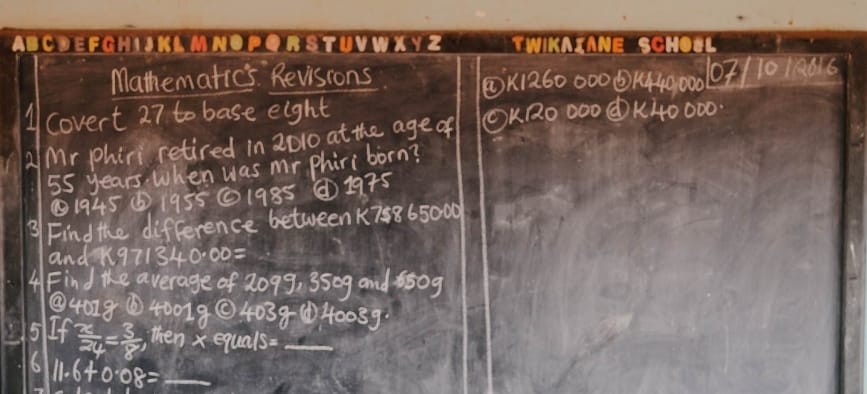 ABCDEFGHIJKLMNOPQRSTUVWXYZ
TWIKAZANE SCHOOL
Mathematics Revisions
1 Covert 27 to base eight
2 Mr phiri retired in 2010 at the age of
55 years. when was mr phiri born?
ⓐ 1945 ⓑ 1955 ⓒ 1985 ⓓ 1975
3 Find the difference between K758650.00
and K971340.00=
4 Find the average of 209g, 350g and 650g
ⓐ 401g ⓑ 4001g ⓒ 403g ⓓ 4003g.
5 If x/24 = 3/8, then x equals= ___
6 11.6+0.08= ___
07/10/2016
ⓐ K1260 000 ⓑ K440,000
ⓒ K120 000 ⓓ K40 000.